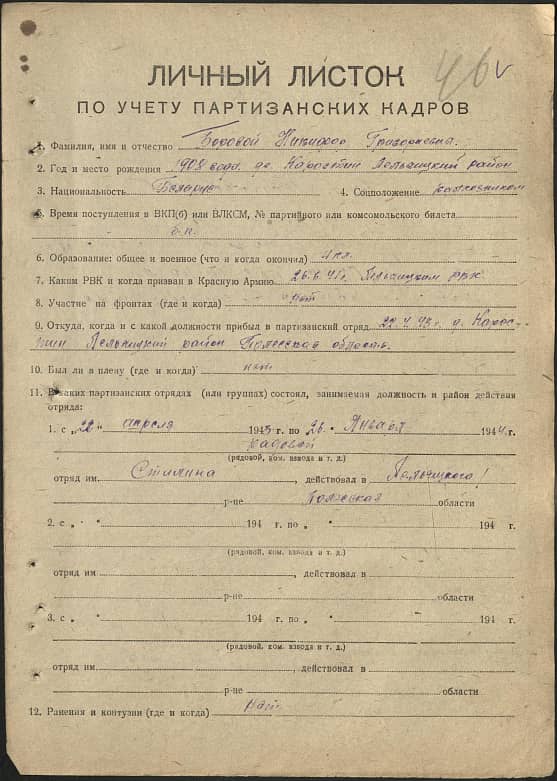 46 v
ЛИЧНЫЙ ЛИСТОК
ПО УЧЕТУ ПАРТИЗАНСКИХ КАДРОВ
1. Фамилия, имя и отчество Боровой Никифор Григорьевич.
2. Год и место рождения 1908 года де. Каростин Лельчицкий район
3. Национальность Беларус 4. Соцположение
5. Время поступления в ВКП(б) или ВЛКСМ, № партийного или комсомольского билета
б-п.
6. Образование: общее и военное (что и когда окончил) 4 кл.
7. Каким РВК и когда призван в Красную Армию 26.6.41 г. Лельчицком РВК
8. Участие на фронтах (где и когда) нет
9. Откуда, когда и с какой должности прибыл в партизанский отряд 22.4.43 г. д. Карос-
тин Лельчицкий район Полесская область.
10. Был ли в плену (где и когда) нет
11. В каких партизанских отрядах (или группах) состоял, занимаемая должность и район действия
отряда:
1. с „22“ апреля 1943 г. по „26“ Января 1944 г.
радовой
(рядовой, ком. взвода и т. д.)
отряд им. Сталина, действовал в Лельчицкого
р-не Полесская области
2. с „ “ 194 г. по „ “ 194 г.
(рядовой, ком. взвода и т. д.)
отряд им , действовал в
р-не области
3. с „ “ 194 г. по „ “ 194 г.
(рядовой, ком. взвода и т. д.)
отряд им. , действовал в
р-не области
12. Ранения и контузии (где и когда) нет